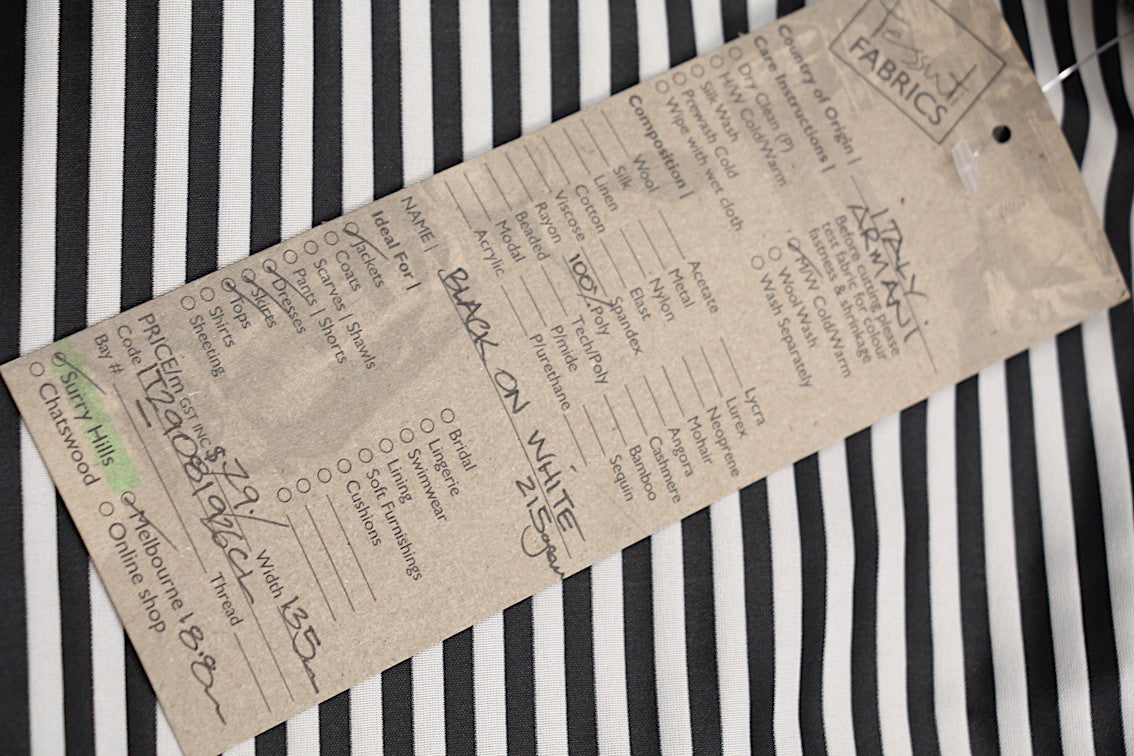 Tessuti
FABRICS
Country of Origin | ITALY.
ARMANI
Care Instructions |
Before cutting please
test fabric for colour
fastness & shrinkage
Dry Clean (P)
H/W Cold/Warm
Silk Wash
Prewash Cold
Wipe with wet cloth
M/W Cold/Warm
Wool Wash
Wash Separately
Composition |
Wool
Silk
Linen
Cotton
Viscose
Rayon
Beaded
Modal
Acrylic
Acetate
Metal
Nylon
Elast
Spandex
100% Poly
Tech/Poly
P/mide
P/urethane
Lycra
Lurex
Neoprene
Mohair
Angora
Cashmere
Bamboo
Sequin
NAME | BLACK ON WHITE
215gram
Ideal For |
Jackets
Coats
Scarves | Shawls
Pants | Shorts
Dresses
Skirts
Tops
Shirts
Sheeting
Bridal
Lingerie
Swimwear
Lining
Soft Furnishings
Cushions
PRICE/m GST INC. $79./ Width 135m
Code
Bay #
Thread
Surry Hills
Chatswood
Melbourne 18.8m
Online shop